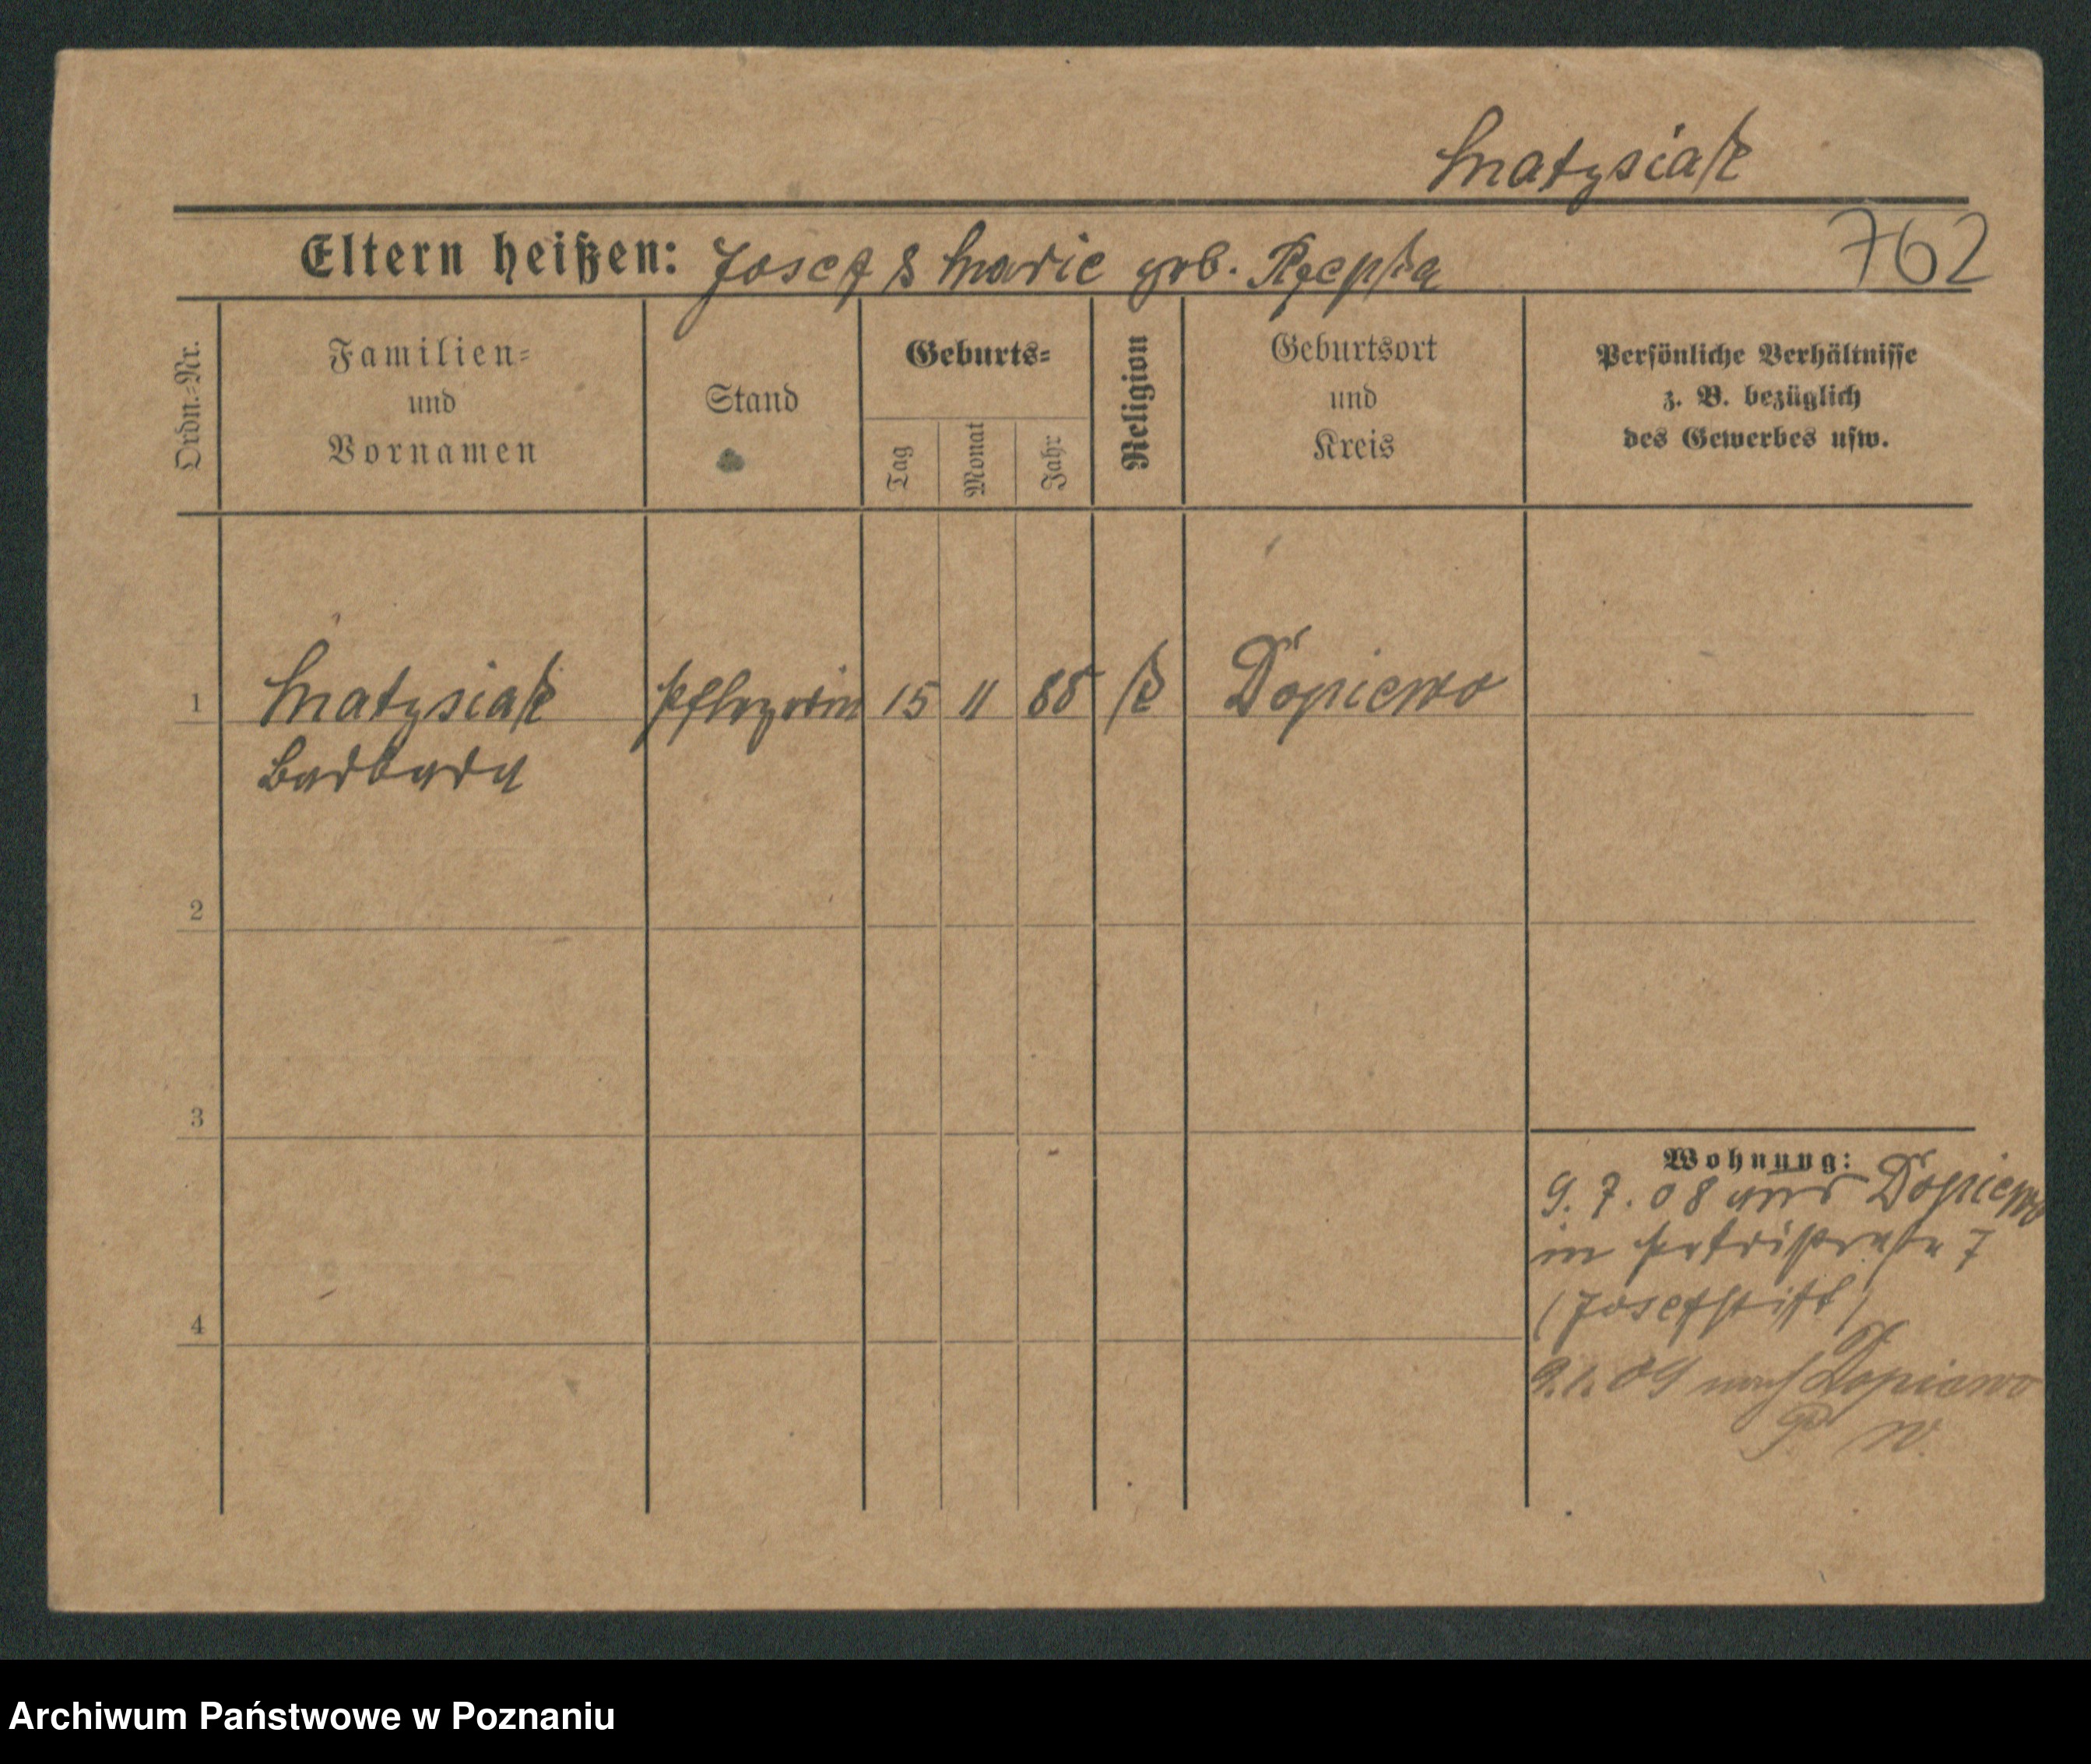 Matysiak
Eltern heißen: Josef & Marie geb. Rzepka
762
Ordn.=Nr.
Familien=
und
Vornamen
Stand
Geburts=
Tag
Monat
Jahr
Religion
Geburtsort
und
Kreis
Persönliche Verhältnisse
z. B. bezüglich
des Gewerbes usw.
1 Matysiak Pflegerin 15 11 88 k Dopiewo
Barbara
2
3
4
Wohnung:
9. 7. 08 aus Dopiewo
in Petristraße 7
(Josefstift)
09 nach Dopiewo
Archiwum Państwowe w Poznaniu